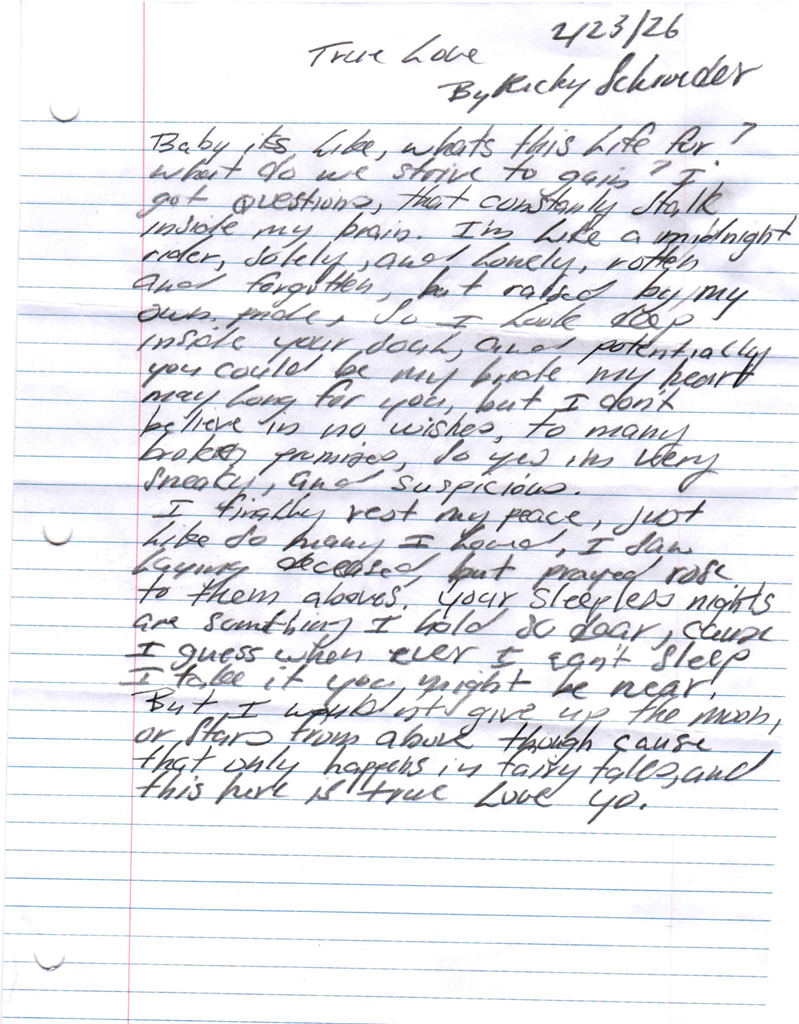 2/23/26
True Love
By Ricky Schroeder
Baby its like, whats this life for?
what do we strive to gain? I
got questions, that constantly stalk
inside my brain. I'm like a midnight
rider, solely, and lonely, rotten
and forgotten, but raised by my
own pride, So I look deep
inside your soul, and potentially
you could be my bride my heart
may long for you, but I don't
believe in no wishes, to many
broken promises, so yes im very
sneaky, and suspicious.
I finally rest my peace, just
like so many I loved, I saw
laying deceased, but prayed rose
to them aboves. Your sleepless nights
are something I hold so dear, cause
I guess when ever I can't sleep
I take it you might be near.
But I would not give up the moon,
or stars from above though cause
that only happens in fairy tales, and
this here is true love yo.